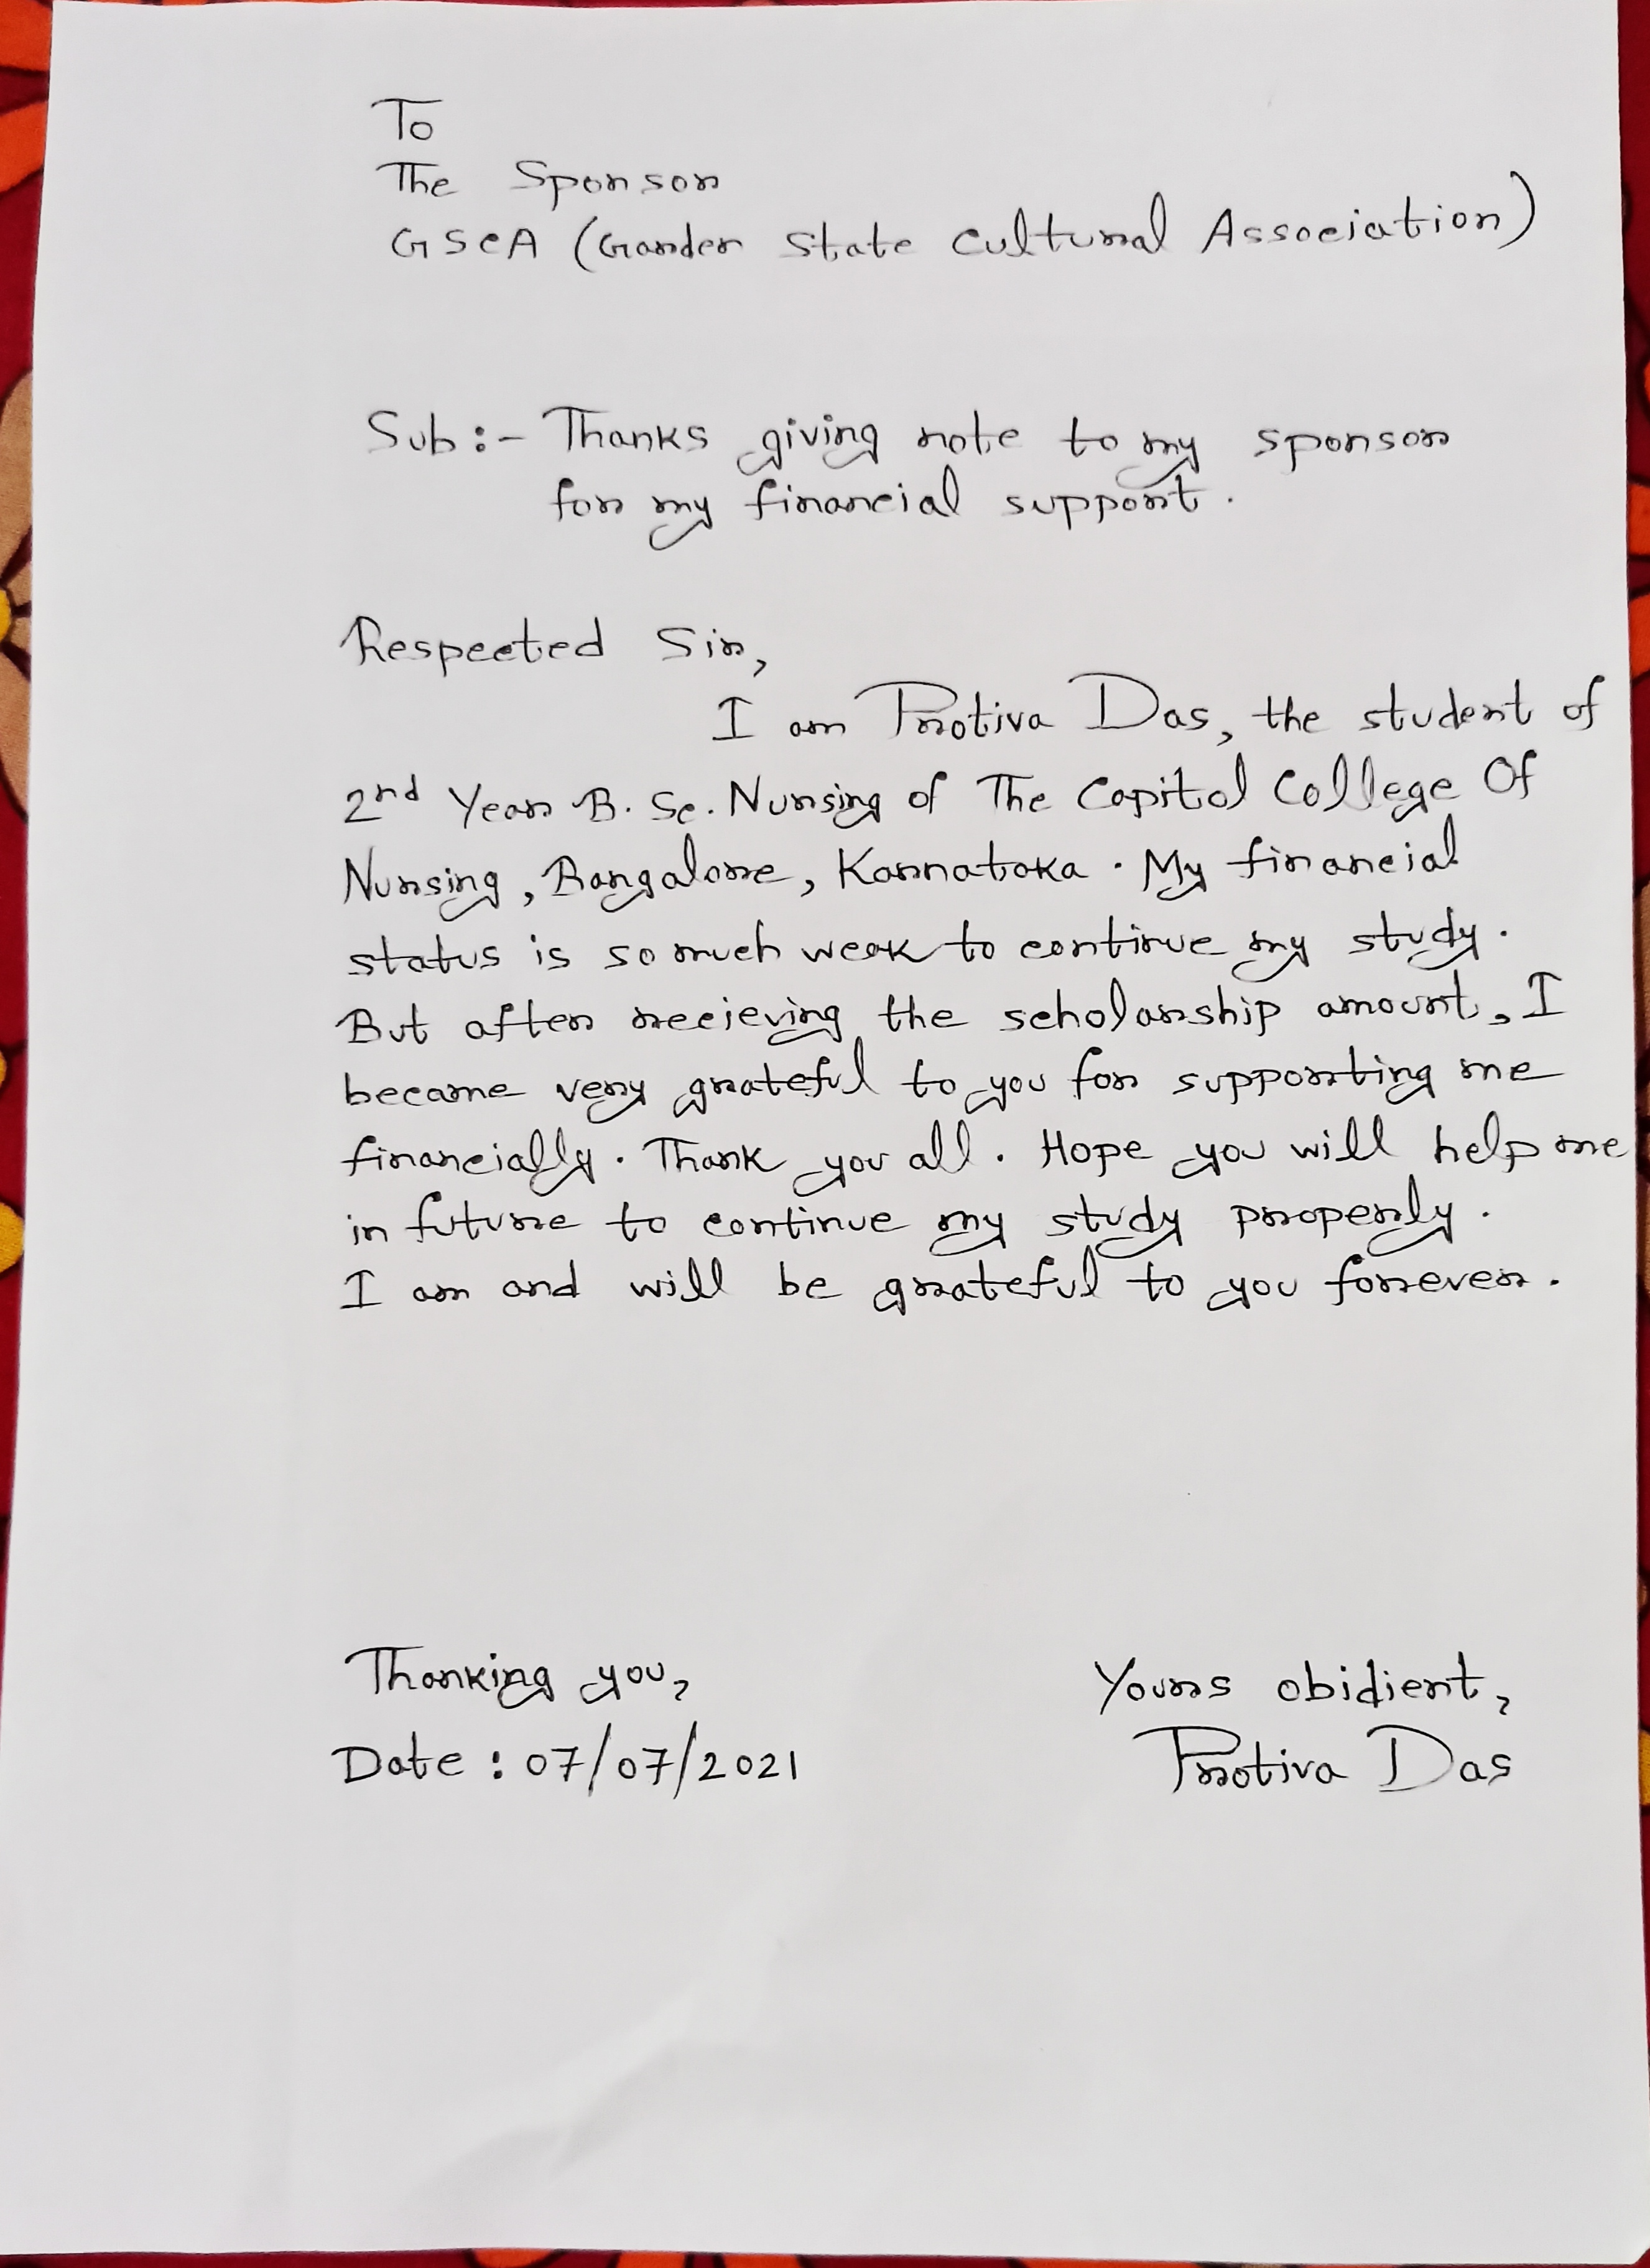 To
The Sponsor
GSCA (Garden State Cultural Association)
Sub:- Thanks giving note to my sponsor
for my financial support.
Respected Sir,
I am Protiva Das, the student of
2nd Year B. Sc. Nursing of The Capitol College Of
Nursing, Bangalore, Karnataka. My financial
status is so much weak to continue my study.
But after recieving the scholarship amount, I
became very grateful to you for supporting me
financially. Thank you all. Hope you will help me
in future to continue my study properly.
I am and will be grateful to you forever.
Thanking you,
Yours obidient,
Date : 07/07/2021
Protiva Das